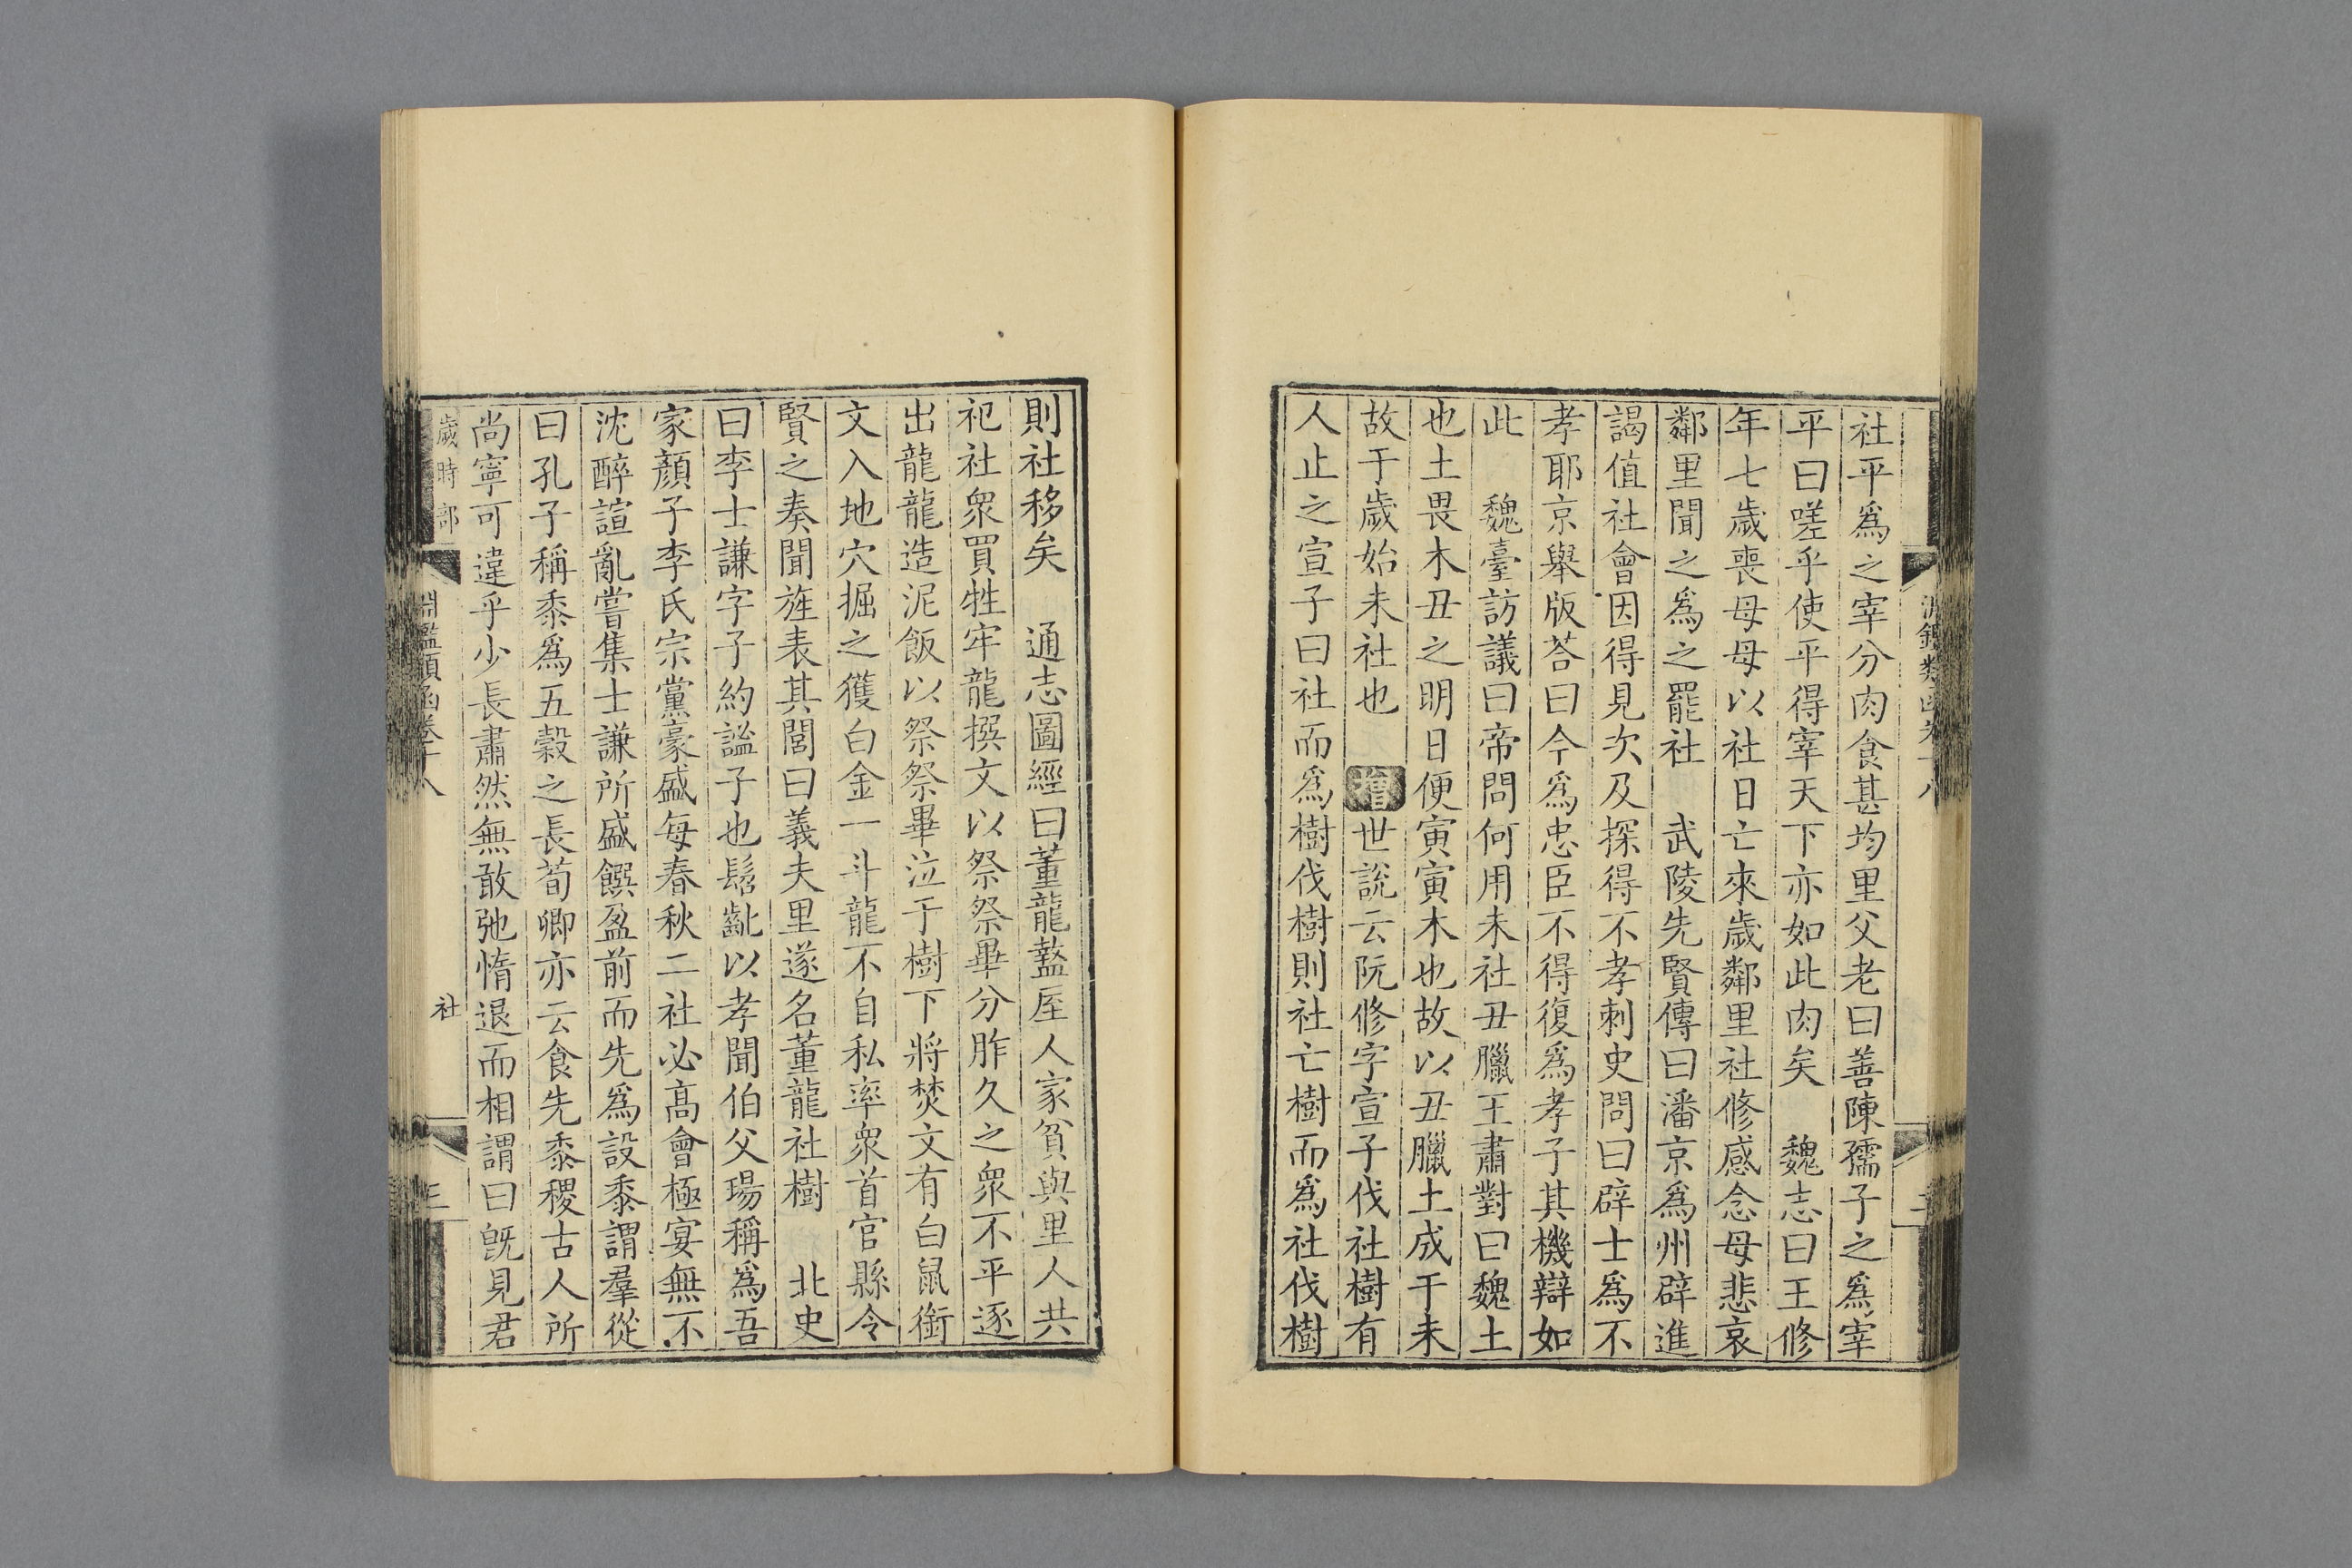 社平爲之宰分肉食甚均里父老曰善陳孺子之爲宰
平曰嗟乎使平得宰天下亦如此肉矣　魏志曰王修
年七歲喪母母以社日亡來歲鄰里社修感念母悲哀
鄰里聞之爲之罷社　武陵先賢傳曰潘京爲州辟進
謁值社會因得見次及探得不孝刺史問曰辟士爲不
孝耶京舉版荅曰今爲忠臣不得復爲孝子其機辯如
此　魏臺訪議曰帝問何用未社丑臘王肅對曰魏土
也土畏木丑之明日便寅寅木也故以丑臘土成于未
故于歲始未社也　增世說云阮修字宣子伐社樹有
人止之宣子曰社而爲樹伐樹則社亡樹而爲社伐樹
則社移矣　通志圖經曰董龍盩厔人家貧與里人共
祀社衆買牲牢龍撰文以祭祭畢分胙久之衆不平逐
出龍龍造泥飯以祭祭畢泣于樹下將焚文有白鼠銜
文入地穴掘之獲白金一斗龍不自私率衆首官縣令
賢之奏聞旌表其閭曰義夫里遂名董龍社樹　北史
曰李士謙字子約謐子也髫齔以孝聞伯父瑒稱爲吾
家顏子李氏宗黨豪盛每春秋二社必高會極宴無不
沈醉諠亂嘗集士謙所盛饌盈前而先爲設黍謂羣從
曰孔子稱黍爲五穀之長荀卿亦云食先黍稷古人所
尚寧可違乎少長肅然無敢弛惰退而相謂曰旣見君
歲時部
淵鑑類函卷十八
社
三